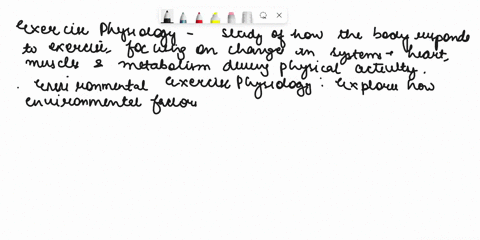 Exercise Physiology - Study of how the body responds
to exercise, focusing on change in systems → heart,
muscles & metabolism during physical activity.
. Environmental Exercise Physiology : Explore how
environmental factor